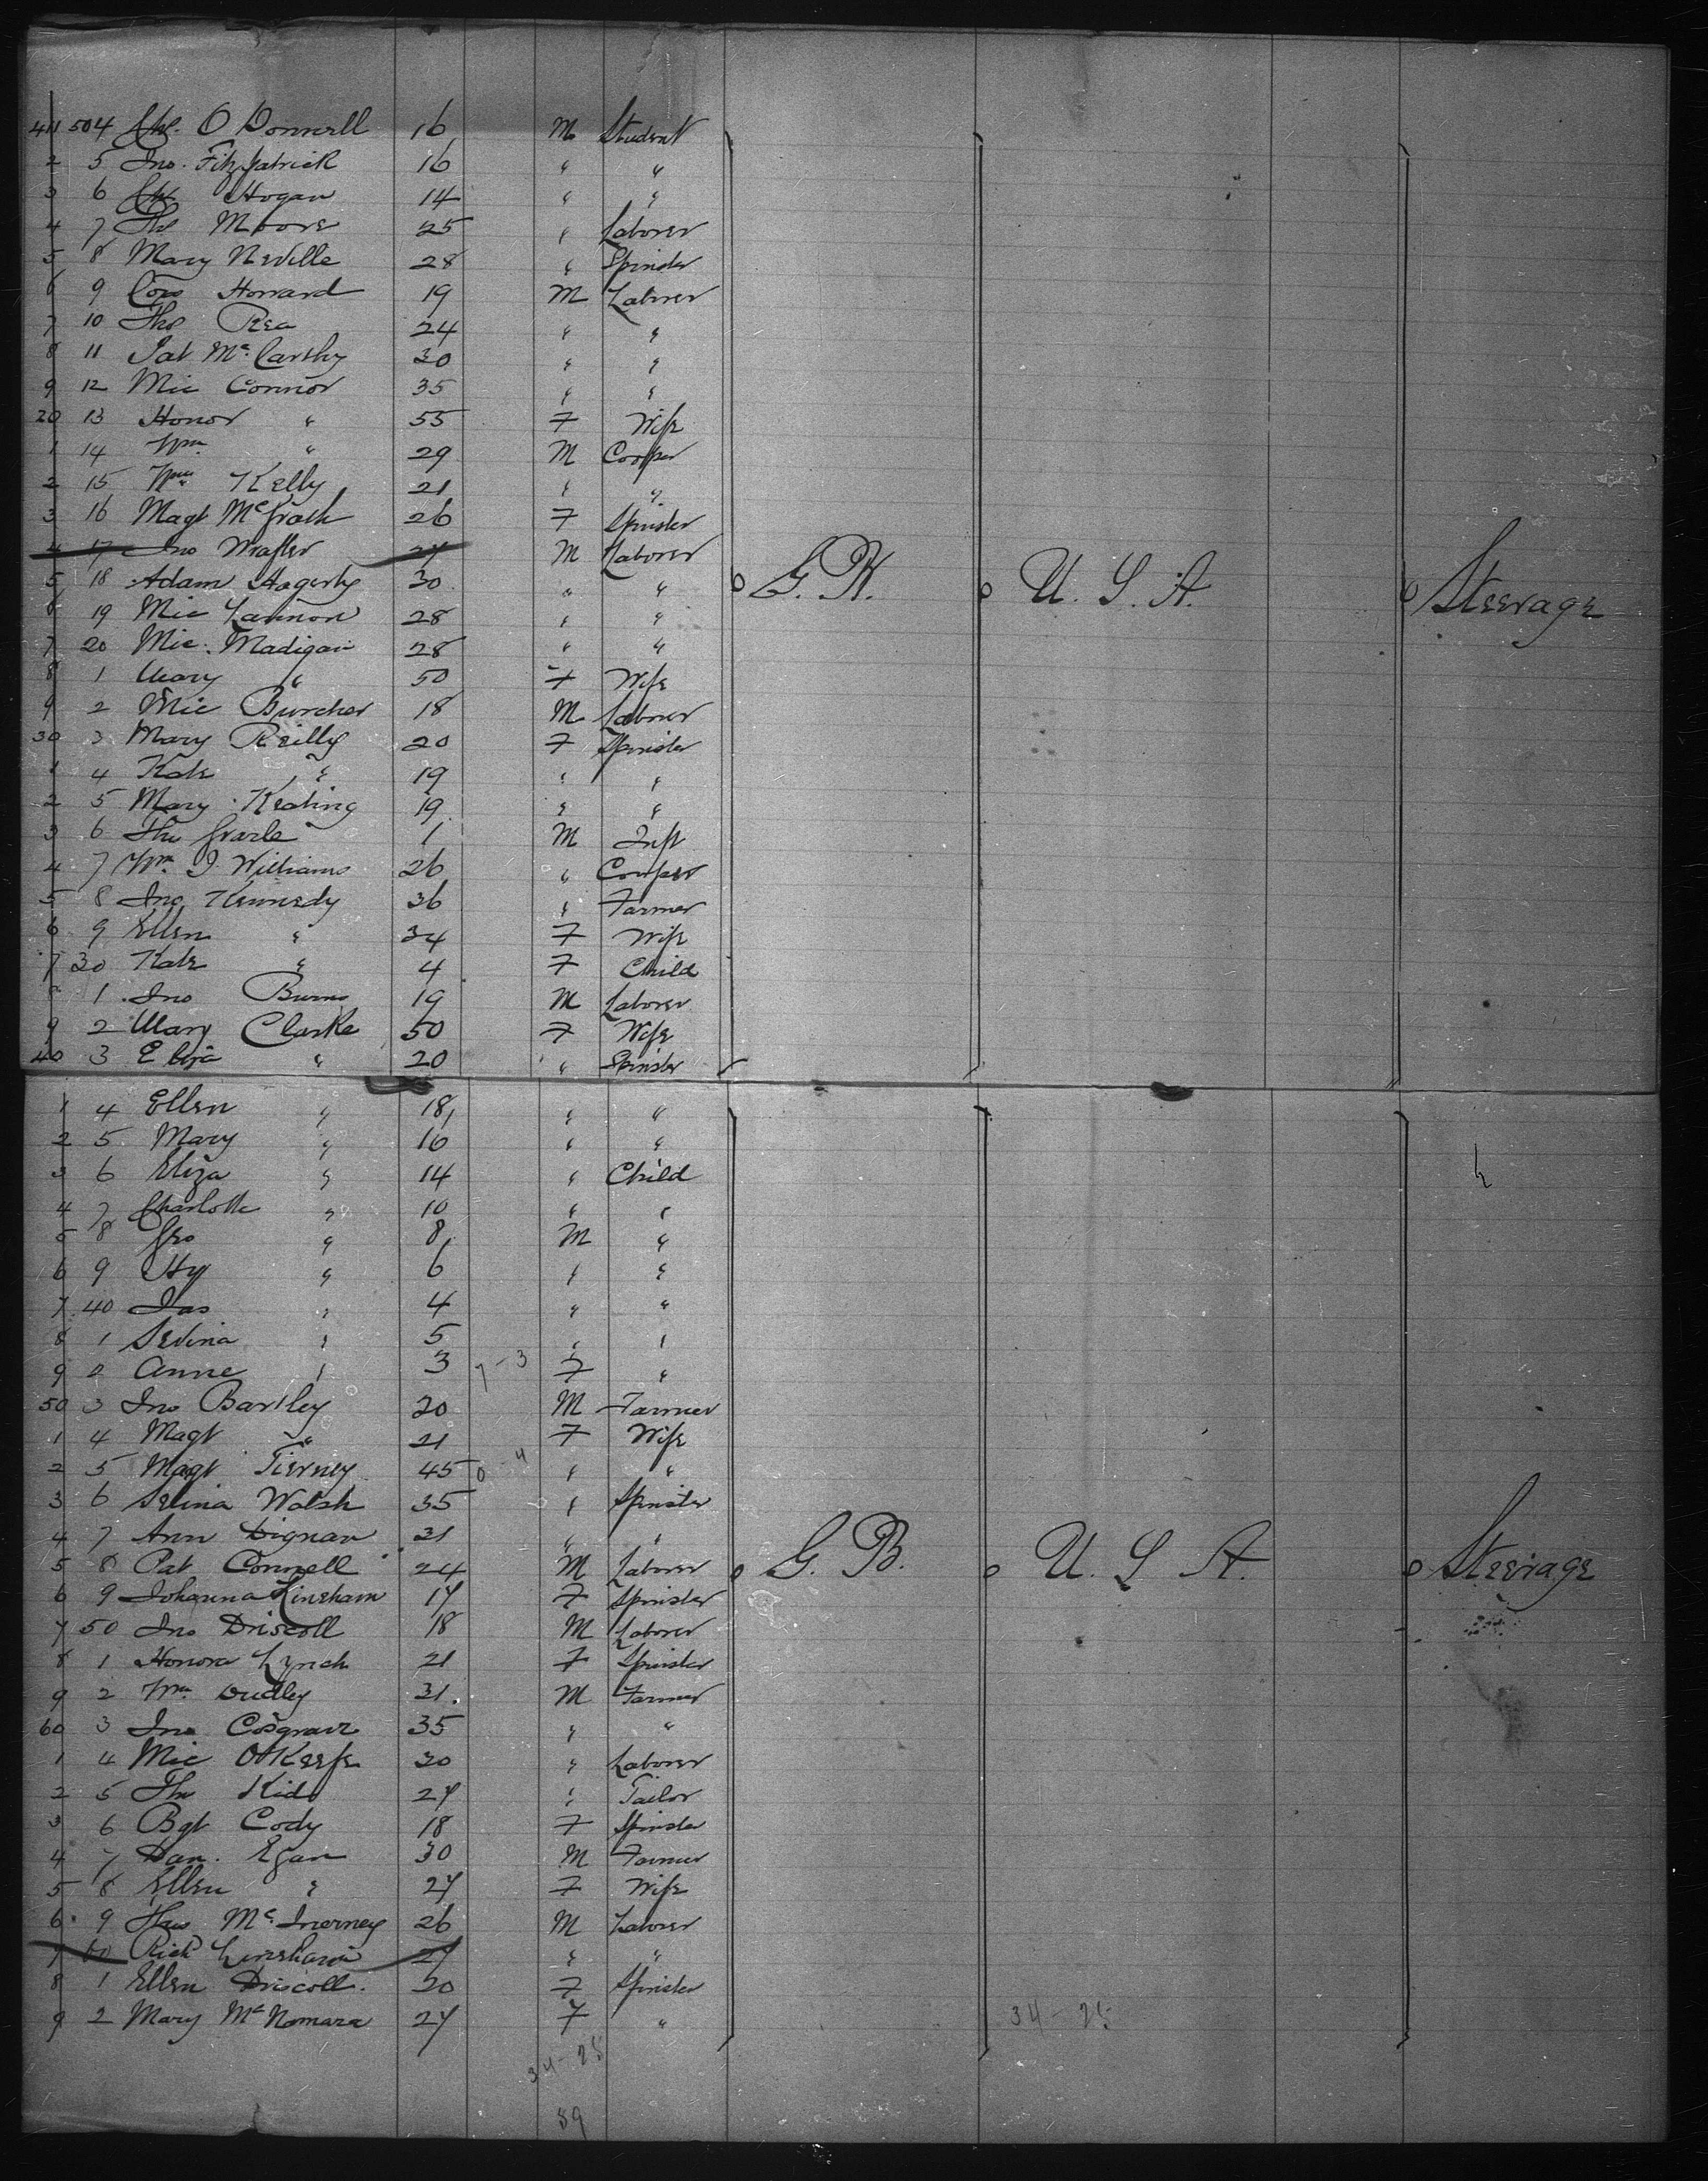 411 504 Chs. O'Donnell 16 M Student
2 5 Jno. Fitzpatrick 16 " "
3 6 Chs. Hogan 14 " "
4 7 Ths Moore 25 " Laborer
5 8 Mary Neville 28 " Spinster
6 9 Howard 19 M Laborer
7 10 Ths Rea 24 " "
8 11 Pat McCarthy 30 " "
9 12 Mic Connor 35 " "
20 13 Honor " 55 F Wife
1 14 Wm " 29 M Cooper
2 15 Wm Kelly 21 " "
3 16 Magt McGrath 26 F Spinster
4 17 Jno 27 M Laborer
5 18 Adam Hagerty 30 " "
6 19 Mic Lannon 28 " "
G. B. U. S. A. Steerage
7 20 Mic. Madigan 28 " "
8 1 Mary " 50 F Wife
9 2 Mic Burcher 18 M Laborer
30 3 Mary Reilly 20 F Spinster
1 4 Kate " 19 " "
2 5 Mary Keating 19 " "
3 6 Ths 1 M Inft
4 7 Wm. J. Williams 26 " Cooper
5 8 Jno. Kennedy 36 " Farmer
6 9 Ellen " 34 F Wife
7 30 Kate " 4 F Child
8 1 Jno Burns 19 M Laborer
9 2 Mary Clarke 50 F Wife
40 3 " 20 " Spinster
1 4 Ellen " 18 " "
2 5 Mary " 16 " "
3 6 Eliza " 14 " Child
4 7 Charlotte " 10 " "
5 8 Geo " 8 M "
6 9 Hy " 6 " "
7 40 Jas " 4 " "
8 1 Selina " 5 " "
9 2 Anne " 3 7-3 F "
50 3 Jno Bartley 20 M Farmer
1 4 Magt " 21 F Wife
2 5 Magt Tierney 45 0-4 " "
3 6 Selina Walsh 35 " Spinster
4 7 Ann Dignan 21 " "
5 8 Pat Connell 24 M Laborer
G. B. U. S. A. Steerage
6 9 Johanna Lineham 17 F Spinster
7 50 Jno Driscoll 18 M Laborer
8 1 Honora Lynch 21 F Spinster
9 2 Wm. Dudley 31 M Farmer
60 3 Jno Cosgrave 35 " "
1 4 Mic O'Keefe 20 " Laborer
2 5 Ths Kidd 27 " Tailor
3 6 Bgt Cody 18 F Spinster
4 7 Dan. Egan 30 M Farmer
5 8 Ellen " 27 F Wife
6 9 Thos McInerney 26 M Laborer
7 60 Rich Linehan 27 " "
8 1 Ellen Driscoll 20 F Spinster
9 2 Mary McNamara 27 F "
34-25
34-25
59